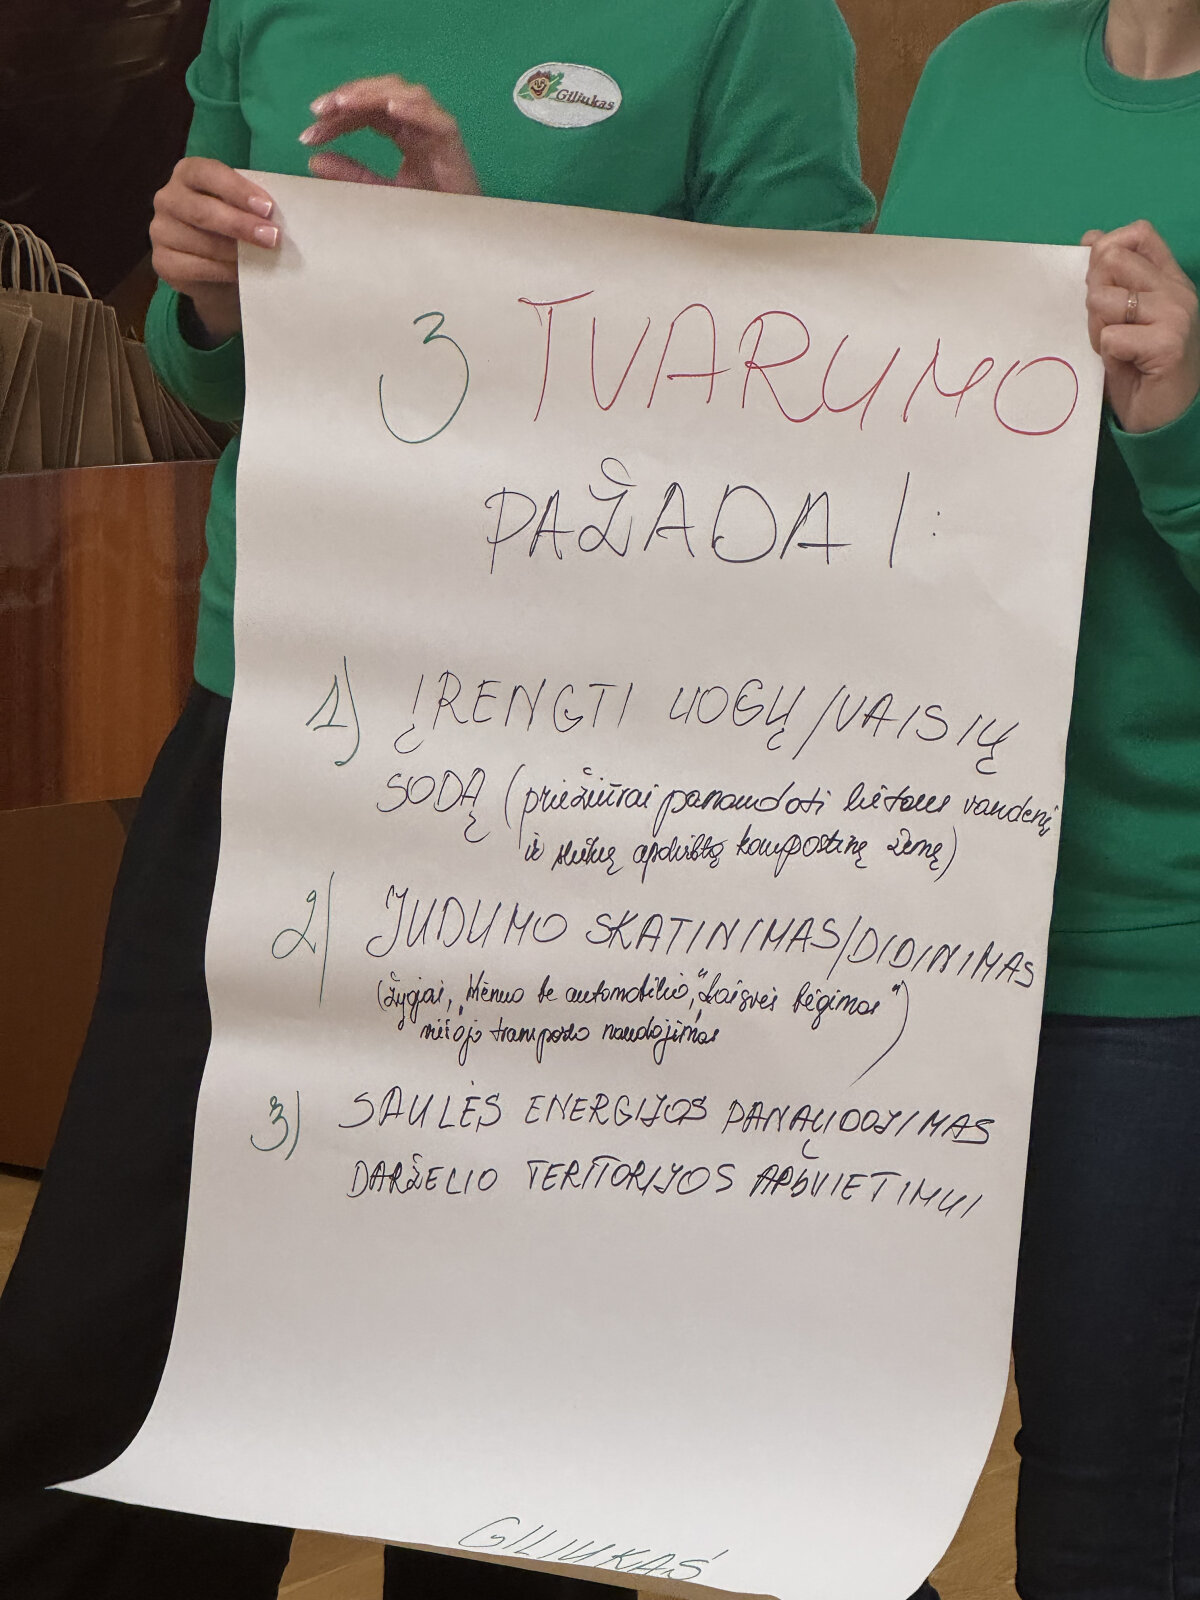 Giliukas
3 TVARUMO
PAŽADAI:
1) ĮRENGTI UOGŲ/VAISIŲ
SODĄ (priežiūrai panaudoti lietaus vandenį
ir sliekų apdirbtą kompostinę žemę)
2) JUDUMO SKATINIMAS/DIDINIMAS
(žygiai, Mėnuo be automobilio, "Laisvės bėgimas"
viešojo transporto naudojimas)
3) SAULĖS ENERGIJOS PANAUDOJIMAS
DARŽELIO TERITORIJOS APŠVIETIMUI
GILIUKAS